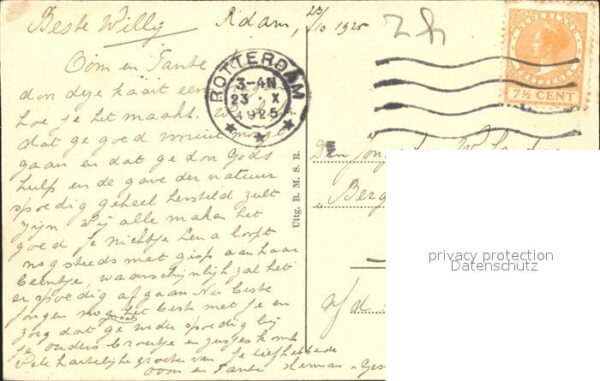 Beste Willy Rdam, 23/10 1925
Oom en Tante
je het maakt.
dat ge goed vooruit moogt
gaan en dat ge door Gods
hulp en de gave der natuur
spoedig geheel hersteld zult
zijn. Wij alle maken het
goed je nichtje Lena loopt
nog steeds met gips aan haar
beentje, waarschijnlijk zal het
er spoedig af gaan Nu beste
jongen nog het beste met je en
zorg dat ge weder spoedig bij
je ouders broertje en zusjes komt
Vele hartelijke groeten van je liefhebbende
Oom en Tante Herman
ROTTERDAM
3-4N
23 X
1925
NEDERLAND
POSTZEGEL
7½ CENT
Uitg. B. M. S. R.
Den
Berg
a/d
privacy protection
Datenschutz